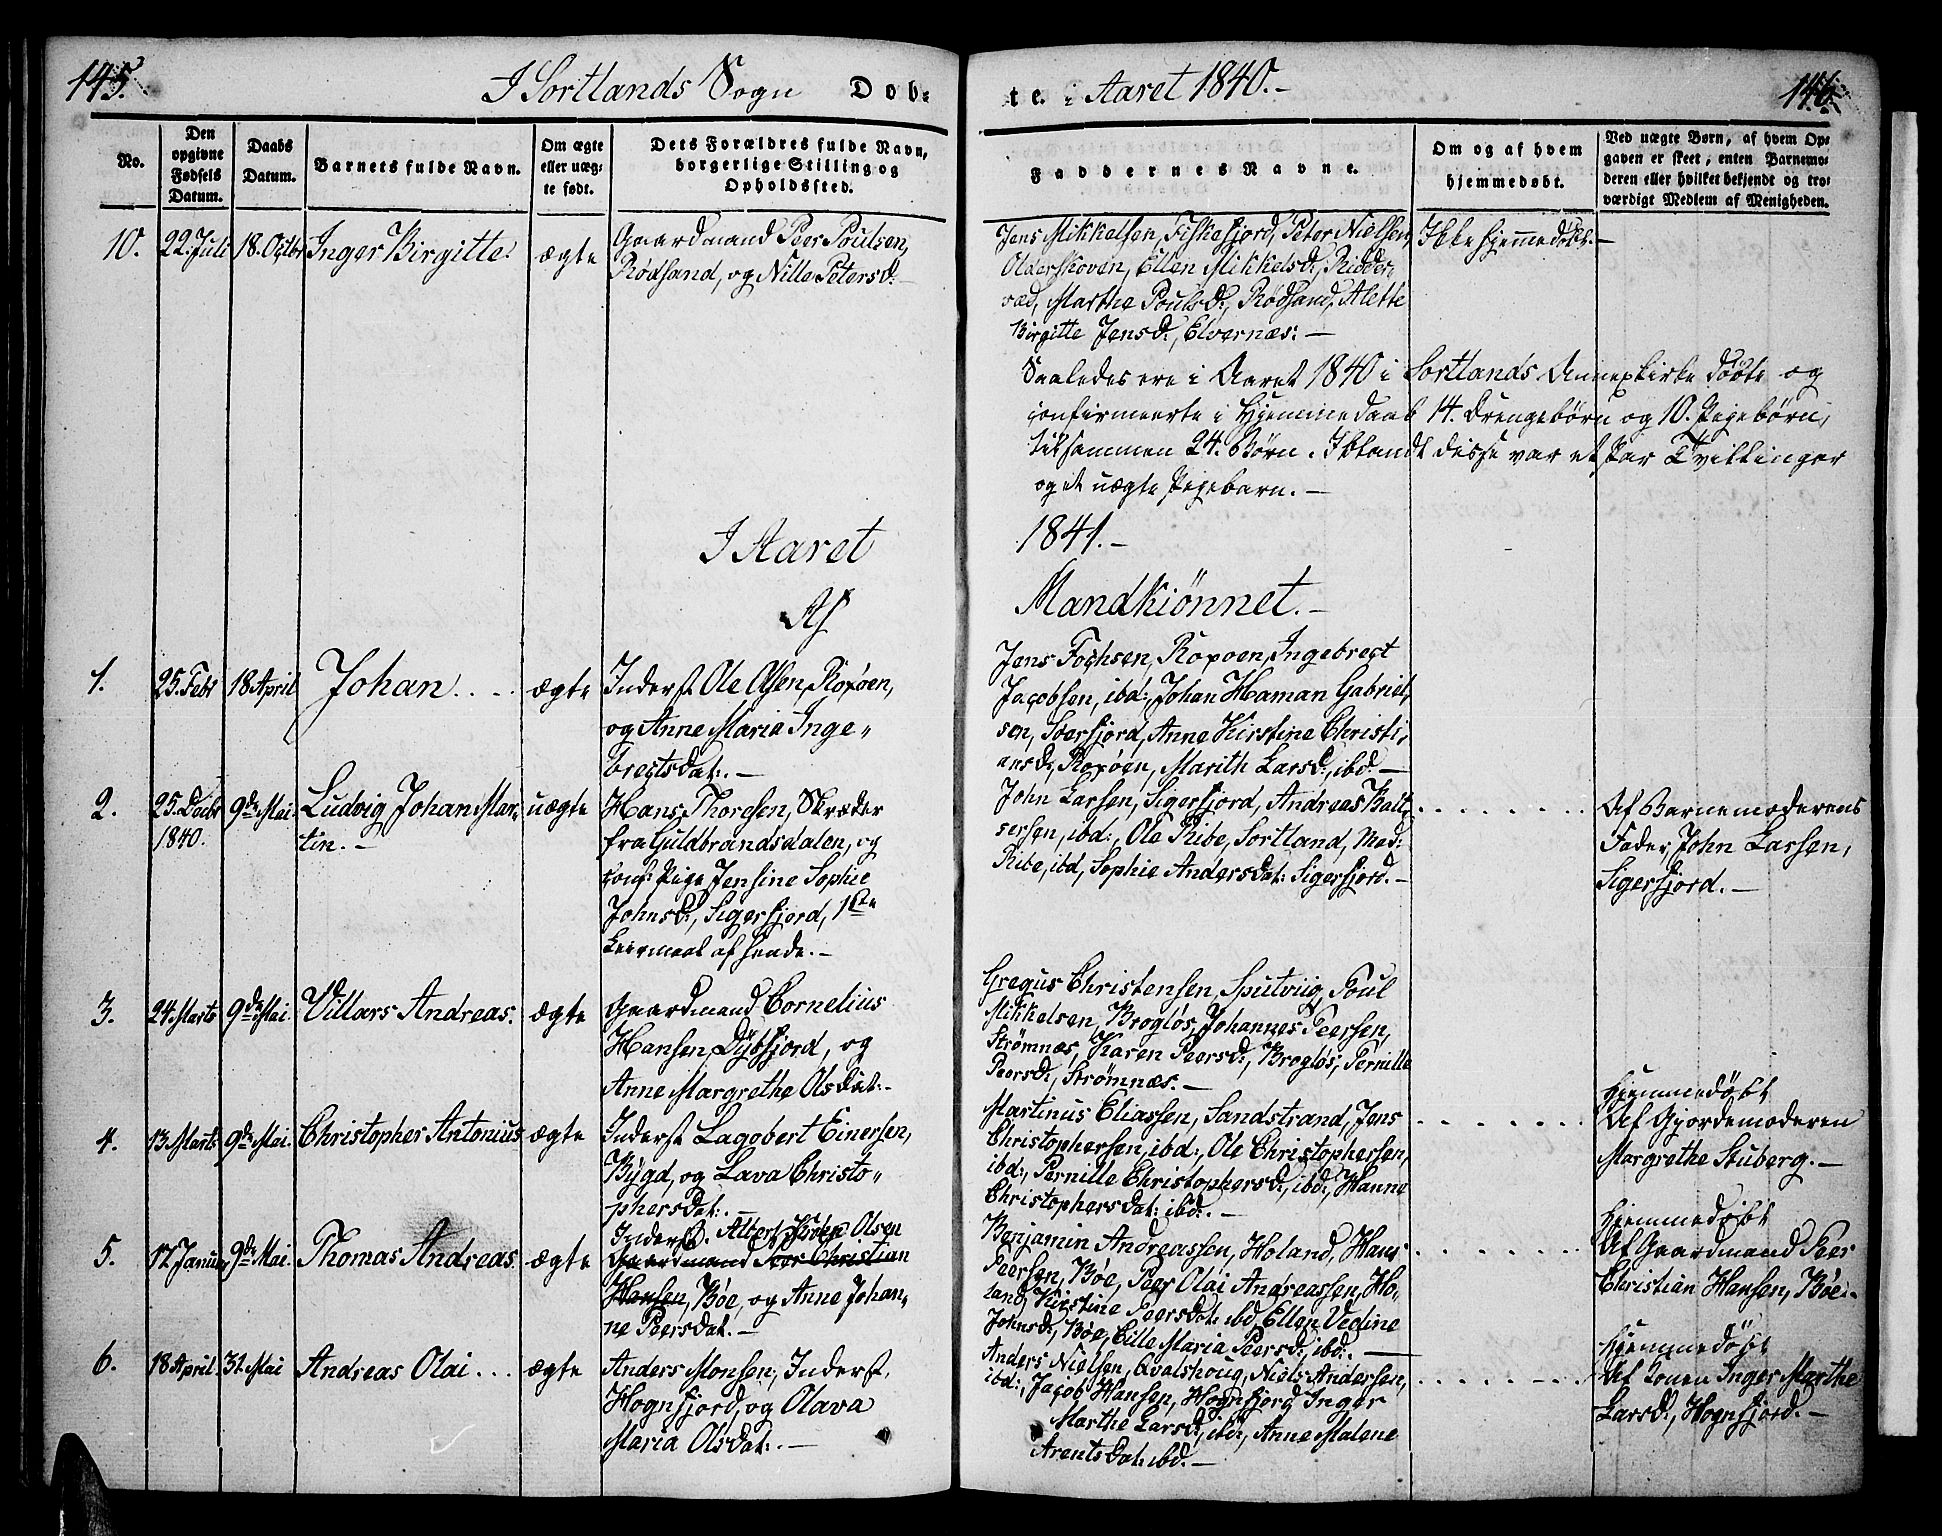 145.
I Sortlands Sogn Dob-
No.
Den opgivne Fødsels Datum.
Daabs Datum.
Barnets fulde Navn.
Om ægte eller uæg-te født.
Dets Forældres fulde Navn,
borgerlige Stilling og
Opholdsted.
10. 22. Juli 18. Octbr Inger Birgitte. ægte
Gaardmand Peer Poulsen,
Rødsand, og Nille Petersd: –
I Aaret
Af
1. 25. Febr 18 April Johan.... ægte
Inderst Ole Olsen, Roxøen,
og Anne Maria Inge„
brectsdat:. –
2. 25. Decbr 1840. 9de Mai. Ludvig Johan Mar-
tin. – uægte
Hans Thoresen, Skræder
fra Guldbrandsdalen, og
conf: Pige Jensine Sophie
Johnsd:, Sigerfjord, 1ste
Leiermaal af hende. –
3. 24. Marts 9de Mai. Villars Andreas. ægte
Gaardmand Cornelius
Hansen, Dybfjord, og
Anne Margrethe Olsdat:. –
4. 13 Marts 9de Mai. Christopher Antonius ægte
Inderst Lagobert Einersen,
Bygd, og Lava Christo„
phersdat:. –
5. 17 Januar 9de Mai. Thomas Andreas. ægte
Inderst. Albert Olsen
Gaardmand Peer Christian
Hansen, Bøe, og Anne Johan„
ne Peersdat. –
6. 18 April. 31. Mai Andreas Olai... ægte
Anders Monsen, Inderst,
Hognfjord, og Olava
Maria Olsdat:. –
te. i Aaret 1840. –
146.
Faddernes Navne.
Om og af hvem
hjemmedøbt.
Ved uægte Børn, af hvem Op-
gaven er skeet, enten Barnemo-
deren eller hvilket bekjendt og tro-
værdigt Medlem af Menigheden.
Jens Mikkelsen, Fiskefjord, Peter Nielsen,
Olderskoven, Ellen Mikkelsd:, Ridder„
vad, Marthe Poulsd:, Rødsand, Alette
Birgitte Jensd:, Elvernæs: –
Ikke hjemmedøbt. –
Saaledes ere i Aaret 1840 i Sortlands Annexkirke døbte og
confirmeerte i Hjemmedaab 14. Drengebørn og 10. Pigebørn,
tilsammen 24. Børn. Iblandt disse var et Par Tvillinger
og et uægte Pigebarn. –
1841. –
Mandkiønnet. –
Jens Fochsen, Roxøen, Ingebrect
Jacobsen, ibd:, Johan Haman Gabriel„
sen, Sværfjord, Anne Kirstine Christi„
ansd:, Roxøen, Marith Larsd:, ibd. –
John Larsen, Sigerfjord, Andreas Balt„
sersen, ibd:, Ole Ribe, Sortland, Mad:
Ribe, ibd, Sophie Andersdat: Sigerfjord. –
Af Barnemoderens
Fader, John Larsen,
Sigerfjord. –
Gregus Christensen, Sputviig, Poul
Mikkelsen, Brogløs, Johannes Peersen,
Strømnæs, Karen Peersd:, Brogløs, Pernille
Peersd:, Strømnæs. –
Martinus Eliassen, Sandstrand, Jens
Christophersen, ibd:, Ole Christophersen,
ibd:, Pernille Christophersd:, ibd:, Hanne
Christophersdat: ibd:. –
Hjemmedøbt
Af Gjordemoderen
Margrethe Stuberg. –
Benjamin Andreassen, Holand, Hans
Peersen, Bøe, Peer Olai Andreassen, Ho„
land, Kirstine Peersdat: ibd, Ellen Vedine
Johnsd:, Bøe, Cille Maria Peersd:, ibd:. –
Hjemmedøbt
Af Gaardmand Peer
Christian Hansen, Bøe. –
Anders Nielsen, Qvalshoug, Niels Andersen,
ibd:, Jacob Hansen, Hognfjord, Inger
Marthe Larsd:, ibd:, Anne Malene
Arentsdat: ibd. –
Hjemmedøbt
Af Konen Inger Marthe
Larsd:, Hognfjord. –